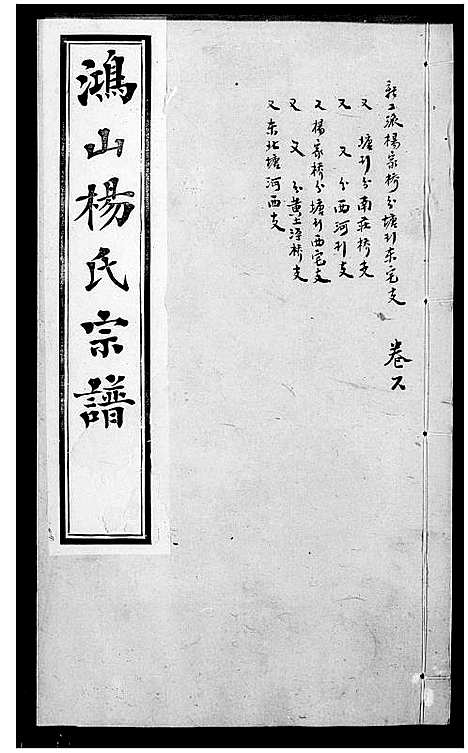 派楊家桥分塘东宅支
又 塘分南莊桥支
又 又分西河支
又楊家桥分塘西宅支
又 又 分黄土泾桥支
又东北塘河西支
卷
鴻山楊氏宗譜